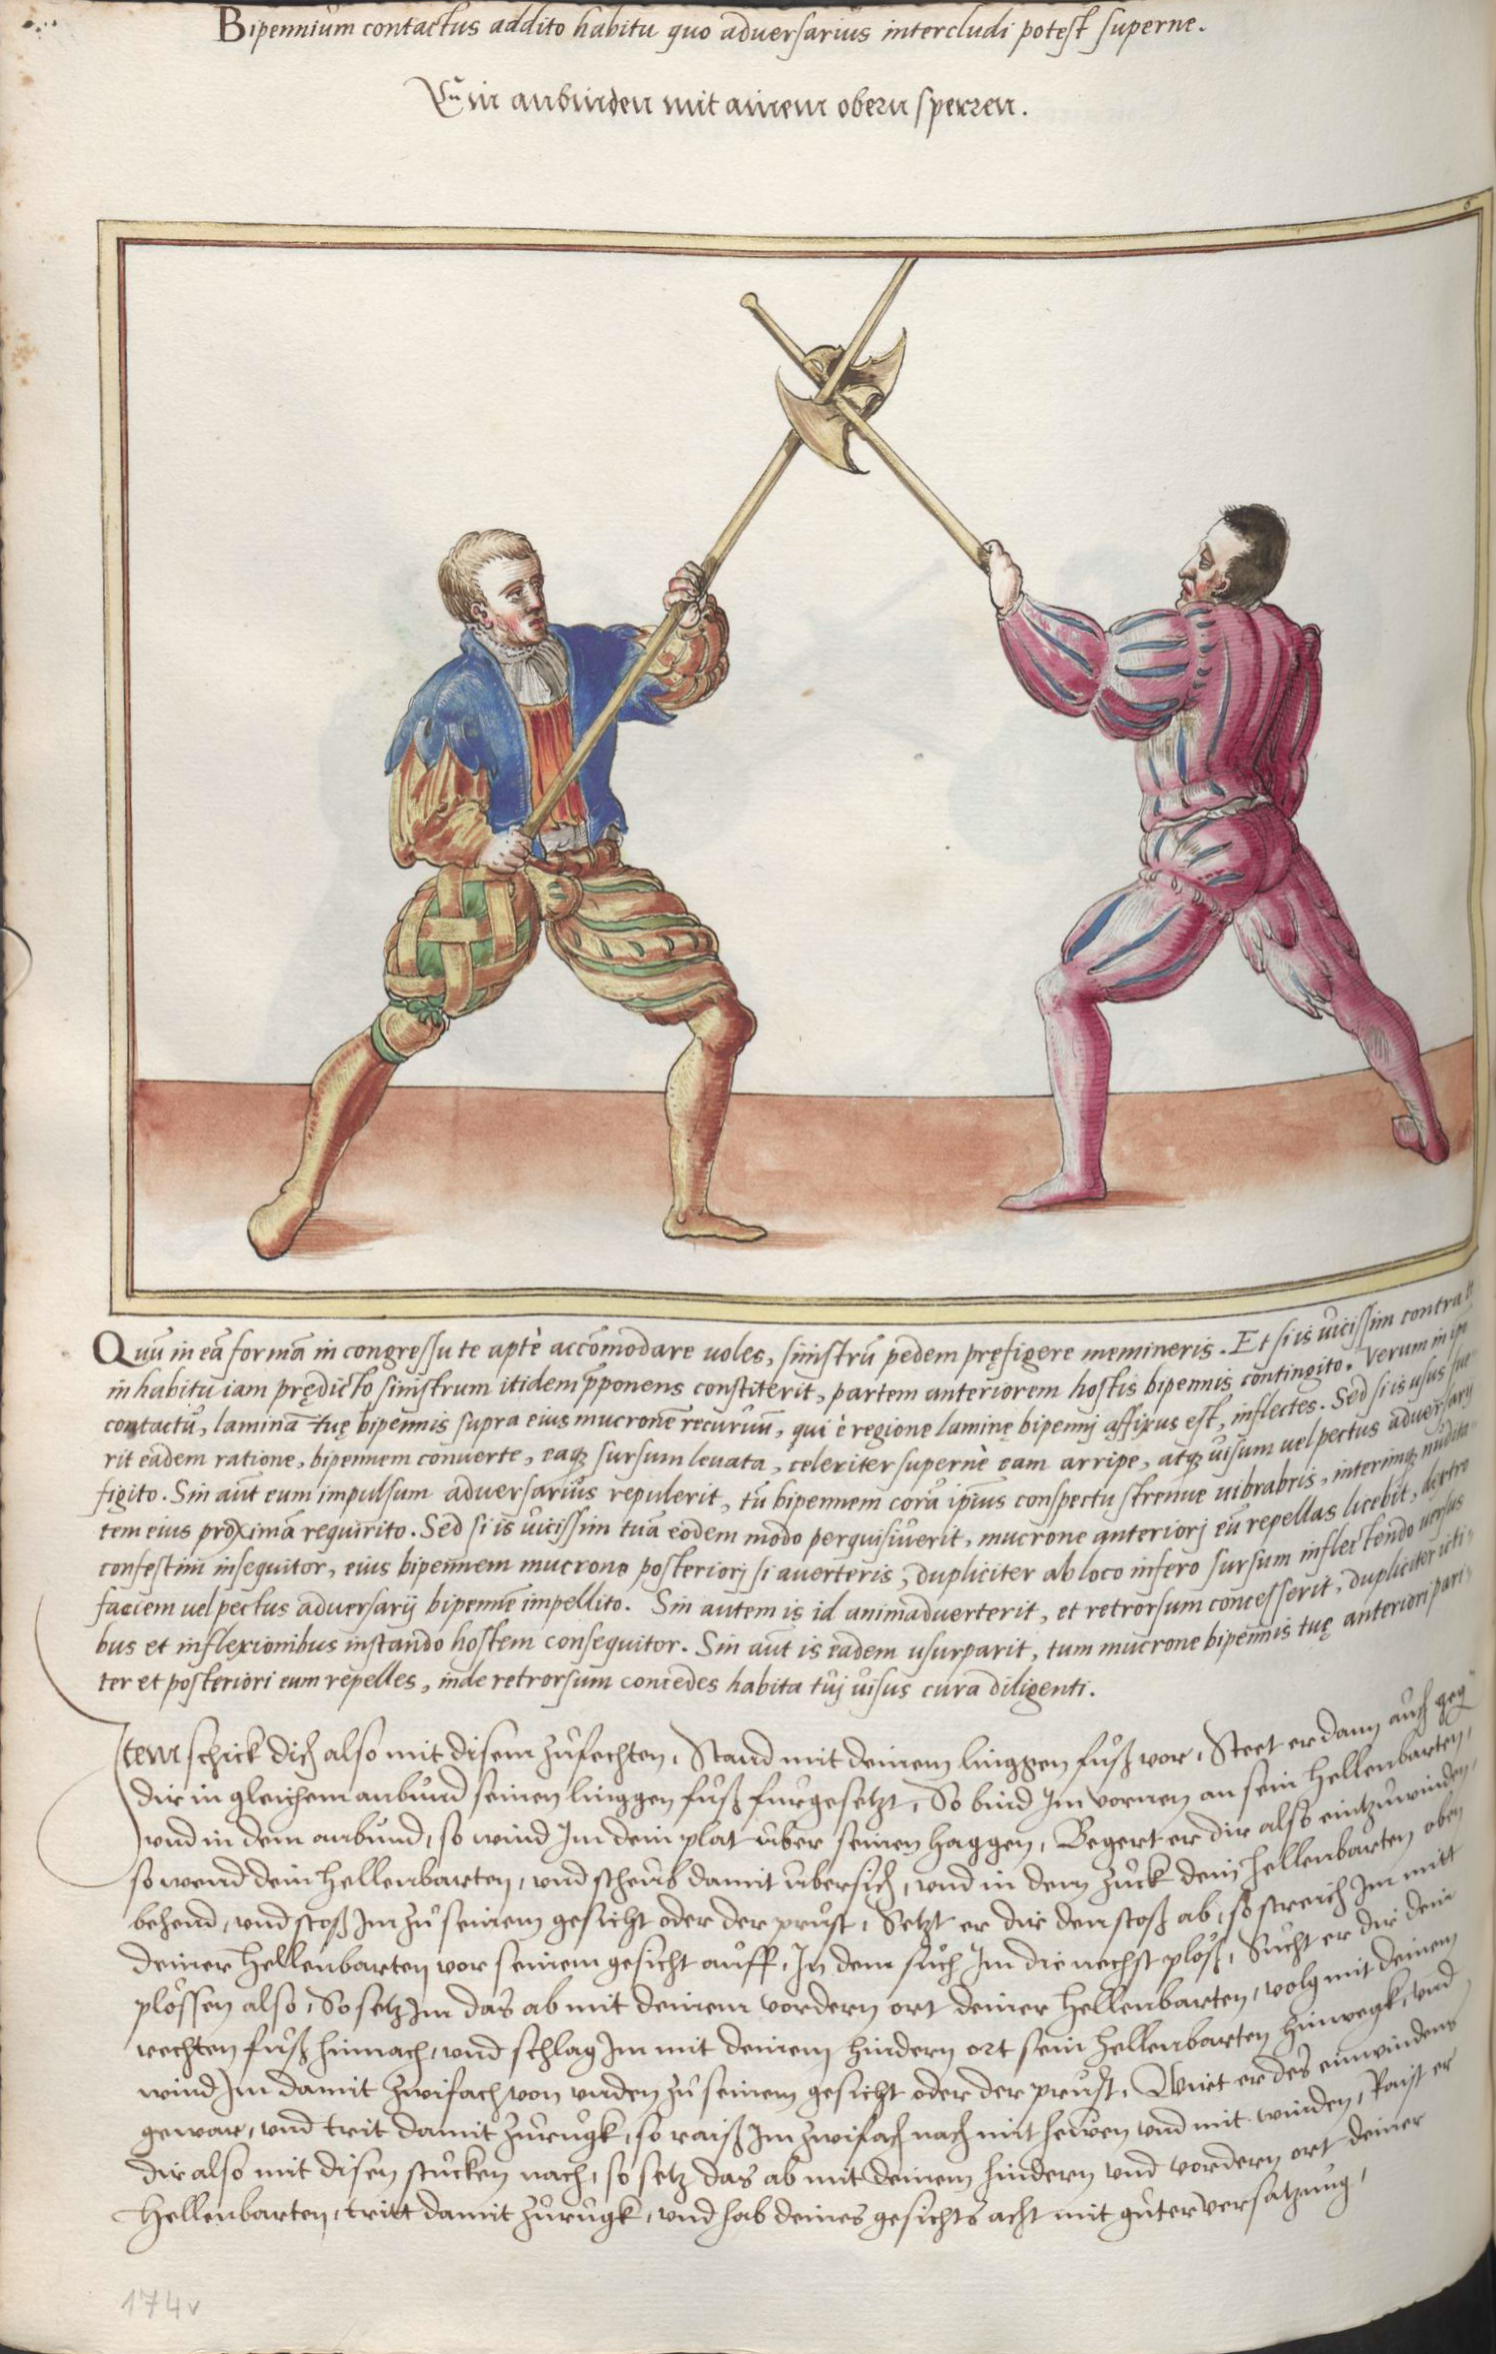 Bipennium contactus addito habitu quo adversarius intercludi potest superne.
Ein anbinden mit ainem obern sperren.
Quū in eā formā in congressu te aptè accōmodare uoles, sinistrū pedem pręfigere memineris. Et si is uicissim contra te
in habitu iam prędicto sinistrum itidem p̄ponens constiterit, partem anteriorem hostis bipennis contingito. Verum in ipso
contactu, laminā tuę bipennis supra eius mucronē recuruū, qui è regione laminę bipennij affixus est, inflectes. Sed si is usus fue⸗
rit eadem ratione, bipennem conuerte, eaqꝫ sursum leuata, celeriter supernè eam arripe, atqꝫ uisum uel pectus adversarij
figito. Sin aūt eum impulsum adversarius repulerit, tū bipennem corā ipsius conspectu strenue uibrabris, interimqꝫ nudita⸗
tem eius proximā requirito. Sed si is uicissim tuā eodem modo perquisiuerit, mucrone anteriorj eū repellas licebit, dextro
confestim insequitor, eius bipennem mucrone posteriorj si auerteris, dupliciter ab loco infero sursum inflectendo uersus
faciem uel pectus adversarij bipennē impellito. Sin autem is id animaduerterit, et retrorsum concesserit, dupliciter icti⸗
bus et inflexionibus instando hostem consequitor. Sin aūt is eadem usurparit, tum mucrone bipennis tuę anteriori pari⸗
ter et posteriori eum repelles, inde retrorsum concedes habita tuj uisus cura diligenti.
Item schick dich also mit disem zůfechten, Stand mit deinem linggen fůß vor, Steet er dann auch geg̅
dir in gleichem anbund seinen linggen fůß furgesetzt, So bind Im vornen an sein hellenbarten,
vnd in dem anbund, so wind Im dein plat uber seinen haggen, Begert er dir also eintzuwinden,
so wend dein hellenbarten, vnd scheub damit ubersich, vnd in dem zuck dein hellenbarten oben
behend, vnd stoß Im zů seinem gesicht oder der prust, Setzt er dir den stoß ab, so streich Im mitt
deiner hellenbarten vor seinem gesicht auff, In dem sůch Im die nechst plöß, Sůcht er dir dein
plössen also, So setz Im das ab mit deinem vordern ort deiner hellenbarten, volg mit deinem
rechten fůß hinnach, vnd schlag Im mit deinem hindern ort sein hellenbarten hinwegk, vnd
wind Im damit zwifach von vnden zů seinem gesicht oder der prust, Wirt er des einwindens
gewar, vnd trit damit zurugk, so raiß Im zwifach nach mit hewen vnd mit winden, Raist er
dir also mit disen stucken nach, so setz das ab mit deinem hindern vnd vordern ort deiner
hellenbarten, tritt damit zurugk, vnd hab deines gesichts acht mit gůter versatzung,
174v